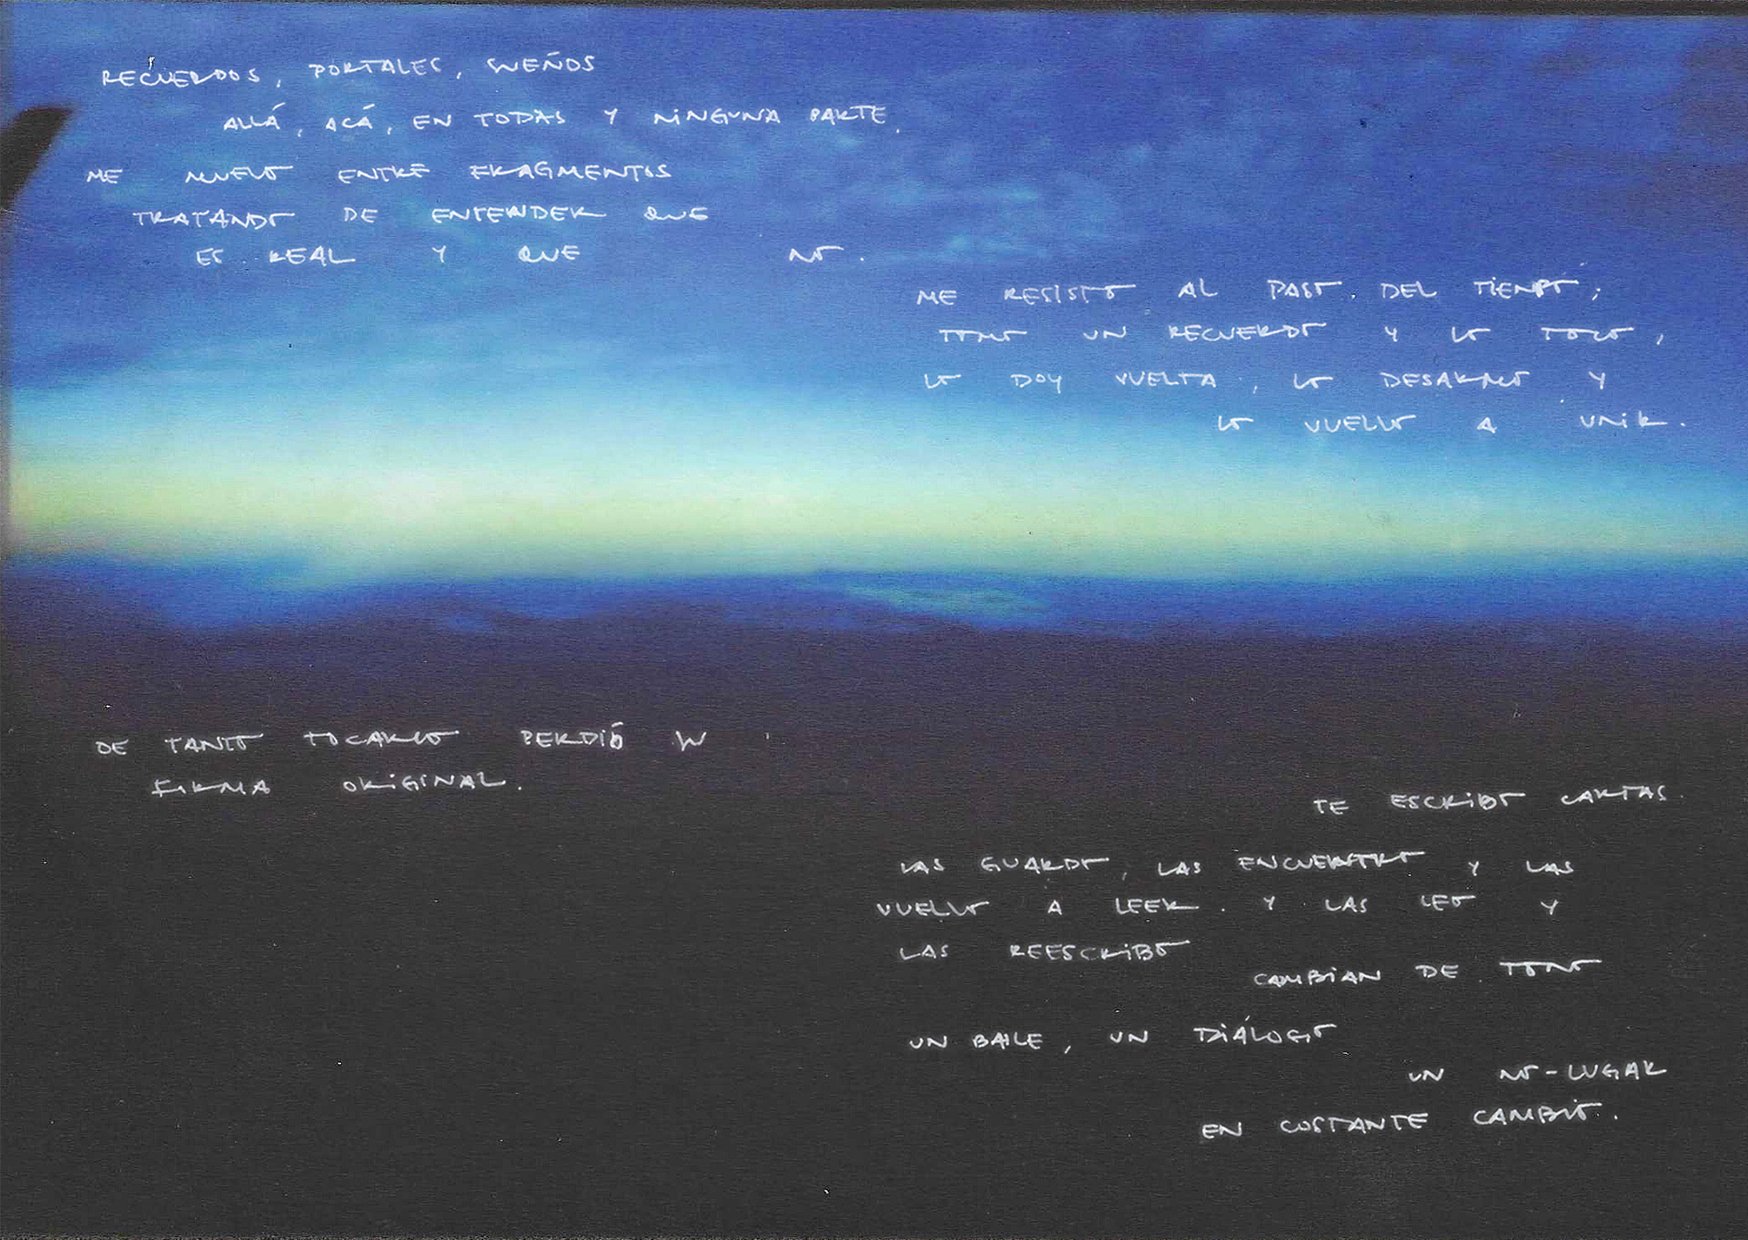 RECUERDOS, PORTALES, SUEÑOS
ALLÁ, ACÁ, EN TODAS Y NINGUNA PARTE.
ME MUEVO ENTRE FRAGMENTOS
TRATANDO DE ENTENDER QUE
ES REAL Y QUE NO.
ME RESISTO AL PASO DEL TIEMPO;
TOMO UN RECUERDO Y LO TOCO,
LO DOY VUELTA, LO DESARMO Y
LO VUELVO A UNIR.
DE TANTO TOCARLO PERDIÓ SU
FORMA ORIGINAL.
TE ESCRIBO CARTAS.
LAS GUARDO, LAS ENCUENTRO Y LAS
VUELVO A LEER. Y LAS LEO Y
LAS REESCRIBO
CAMBIAN DE TONO
UN BAILE, UN DIÁLOGO
UN NO-LUGAR
EN COSTANTE CAMBIO.